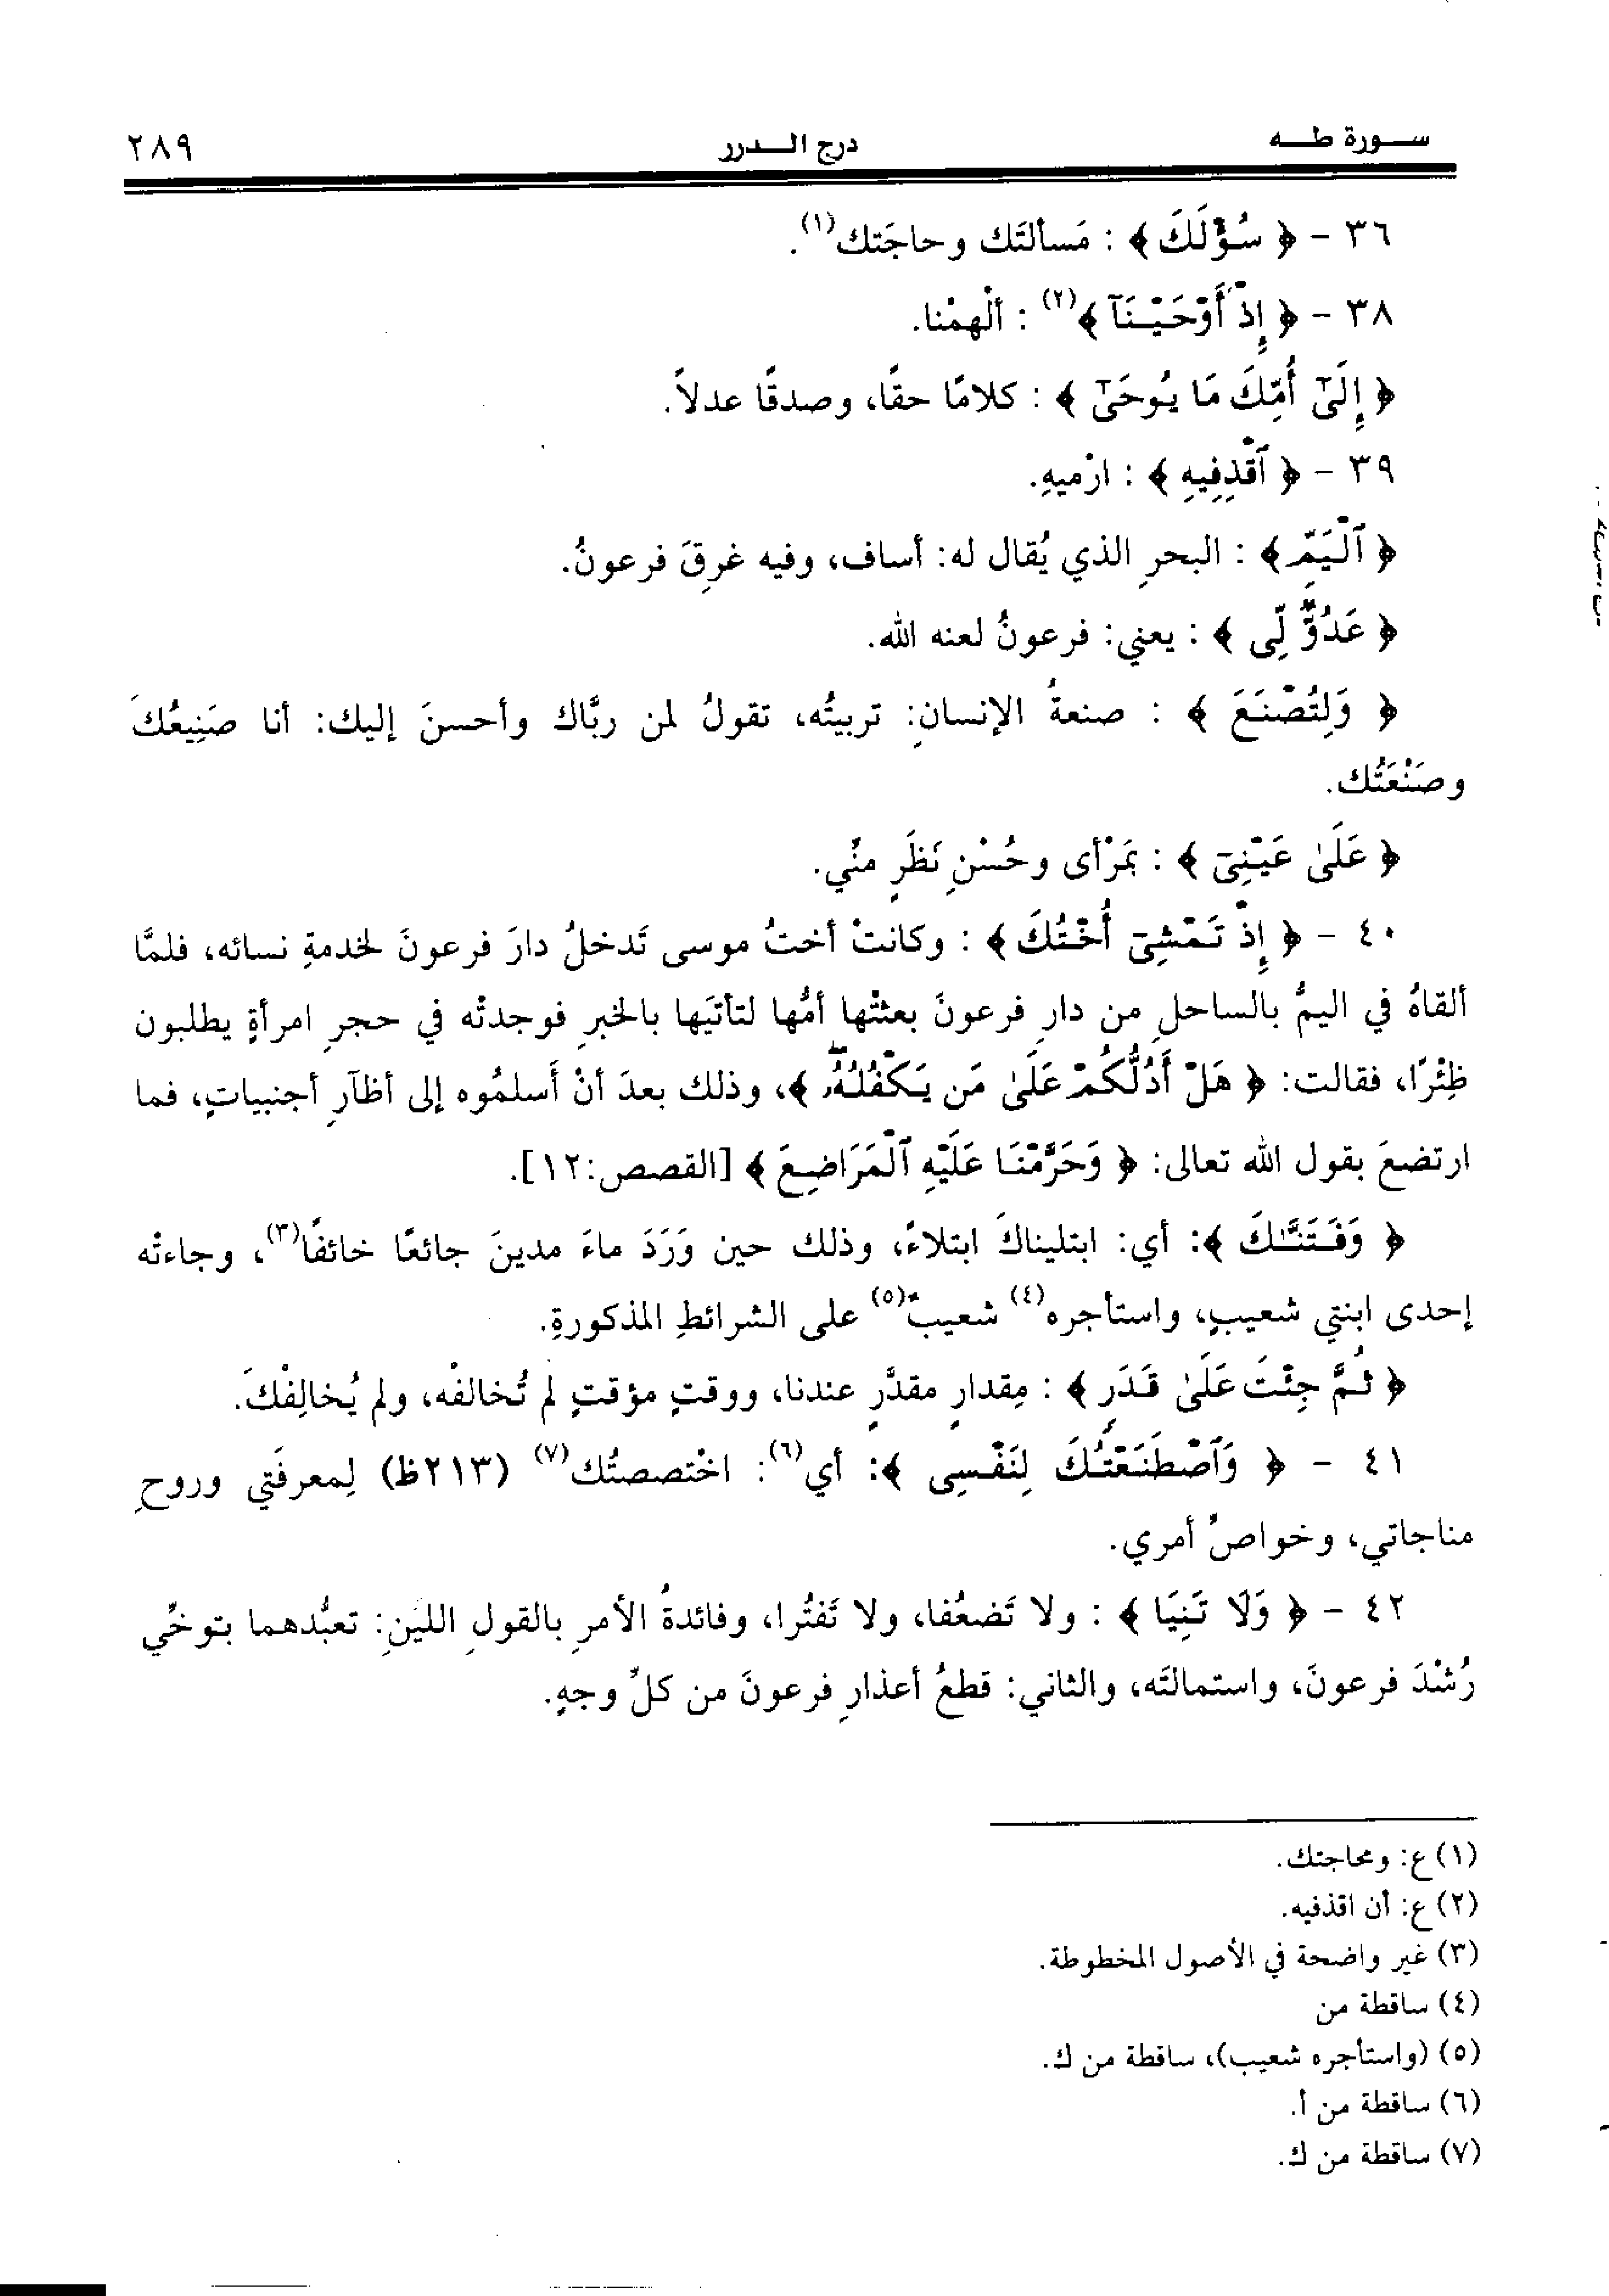 سـورة طـه درج الـدرر ٢٨٩
٣٦ - ﴿ سُؤْلَكَ ﴾ : مَسألتَك وحاجَتك(١).
٣٨ - ﴿ إِذْ أَوْحَيْنَآ ﴾(٢) : ألْهمْنا.
﴿ إِلَىٰٓ أُمِّكَ مَا يُوحَىٰٓ ﴾ : كلامًا حقًا، وصدقًا عدلاً.
٣٩ - ﴿ ٱقْذِفِيهِ ﴾ : ارْميهِ.
﴿ ٱلْيَمِّ ﴾ : البحرِ الذي يُقال له: أساف، وفيه غرِقَ فرعونُ.
﴿ عَدُوٌّ لِّى ﴾ : يعني: فرعونُ لعنه الله.
﴿ وَلِتُصْنَعَ ﴾ : صنعةُ الإنسانِ: تربيتُه، تقولُ لمن ربَّاك وأحسنَ إليك: أنا صَنِيعُكَ
وصَنْعَتُك.
﴿ عَلَىٰ عَيْنِىٓ ﴾ : بمَرْأى وحُسْنِ نَظَرٍ منّي.
٤٠ - ﴿ إِذْ تَمْشِىٓ أُخْتُكَ ﴾ : وكانتْ أختُ موسى تَدخلُ دارَ فرعونَ لخدمةِ نسائه، فلمَّا
ألقاهُ في اليمُّ بالساحلِ من دارِ فرعونَ بعثتْها أمُّها لتأتيَها بالخبرِ فوجدتْه في حجرِ امرأةٍ يطلبون
ظِئْرًا، فقالت: ﴿ هَلْ أَدُلُّكُمْ عَلَىٰ مَن يَكْفُلُهُۥ ۖ ﴾، وذلك بعدَ أنْ أَسلمُوه إلى أظآرِ أجنبياتٍ، فما
ارتضعَ بقول الله تعالى: ﴿ وَحَرَّمْنَا عَلَيْهِ ٱلْمَرَاضِعَ ﴾ [القصص:١٢].
﴿ وَفَتَنَّـٰكَ ﴾: أي: ابتليناكَ ابتلاءً، وذلك حين وَرَدَ ماءَ مدينَ جائعًا خائفًا(٣)، وجاءتْه
إحدى ابنتي شعيبٍ، واستأجره(٤) شعيبٌ(٥) على الشرائطِ المذكورةِ.
﴿ ثُمَّ جِئْتَ عَلَىٰ قَدَرٍ ﴾ : مِقدارٍ مقدَّرٍ عندنا، ووقتٍ مؤقتٍ لم تُخالفْه، ولم يُخالِفْكَ.
٤١ - ﴿ وَٱصْطَنَعْتُكَ لِنَفْسِى ﴾: أي(٦): اخْتصصتُك(٧) (٢١٣ظ) لِمعرفَتي وروحِ
مناجاتي، وخواصِّ أمري.
٤٢ - ﴿ وَلَا تَنِيَا ﴾ : ولا تَضعُفا، ولا تَفتُرا، وفائدةُ الأمرِ بالقولِ الليَنِ: تعبُّدهما بتوخِّي
رُشْدَ فرعونَ، واستمالتَه، والثاني: قطعُ أعذارِ فرعونَ من كلِّ وجهٍ.
(١) ع: ومحاجتك.
(٢) ع: أن اقذفيه.
(٣) غير واضحة في الأصول المخطوطة.
(٤) ساقطة من
(٥) (واستأجره شعيب)، ساقطة من ك.
(٦) ساقطة من أ.
(٧) ساقطة من ك.